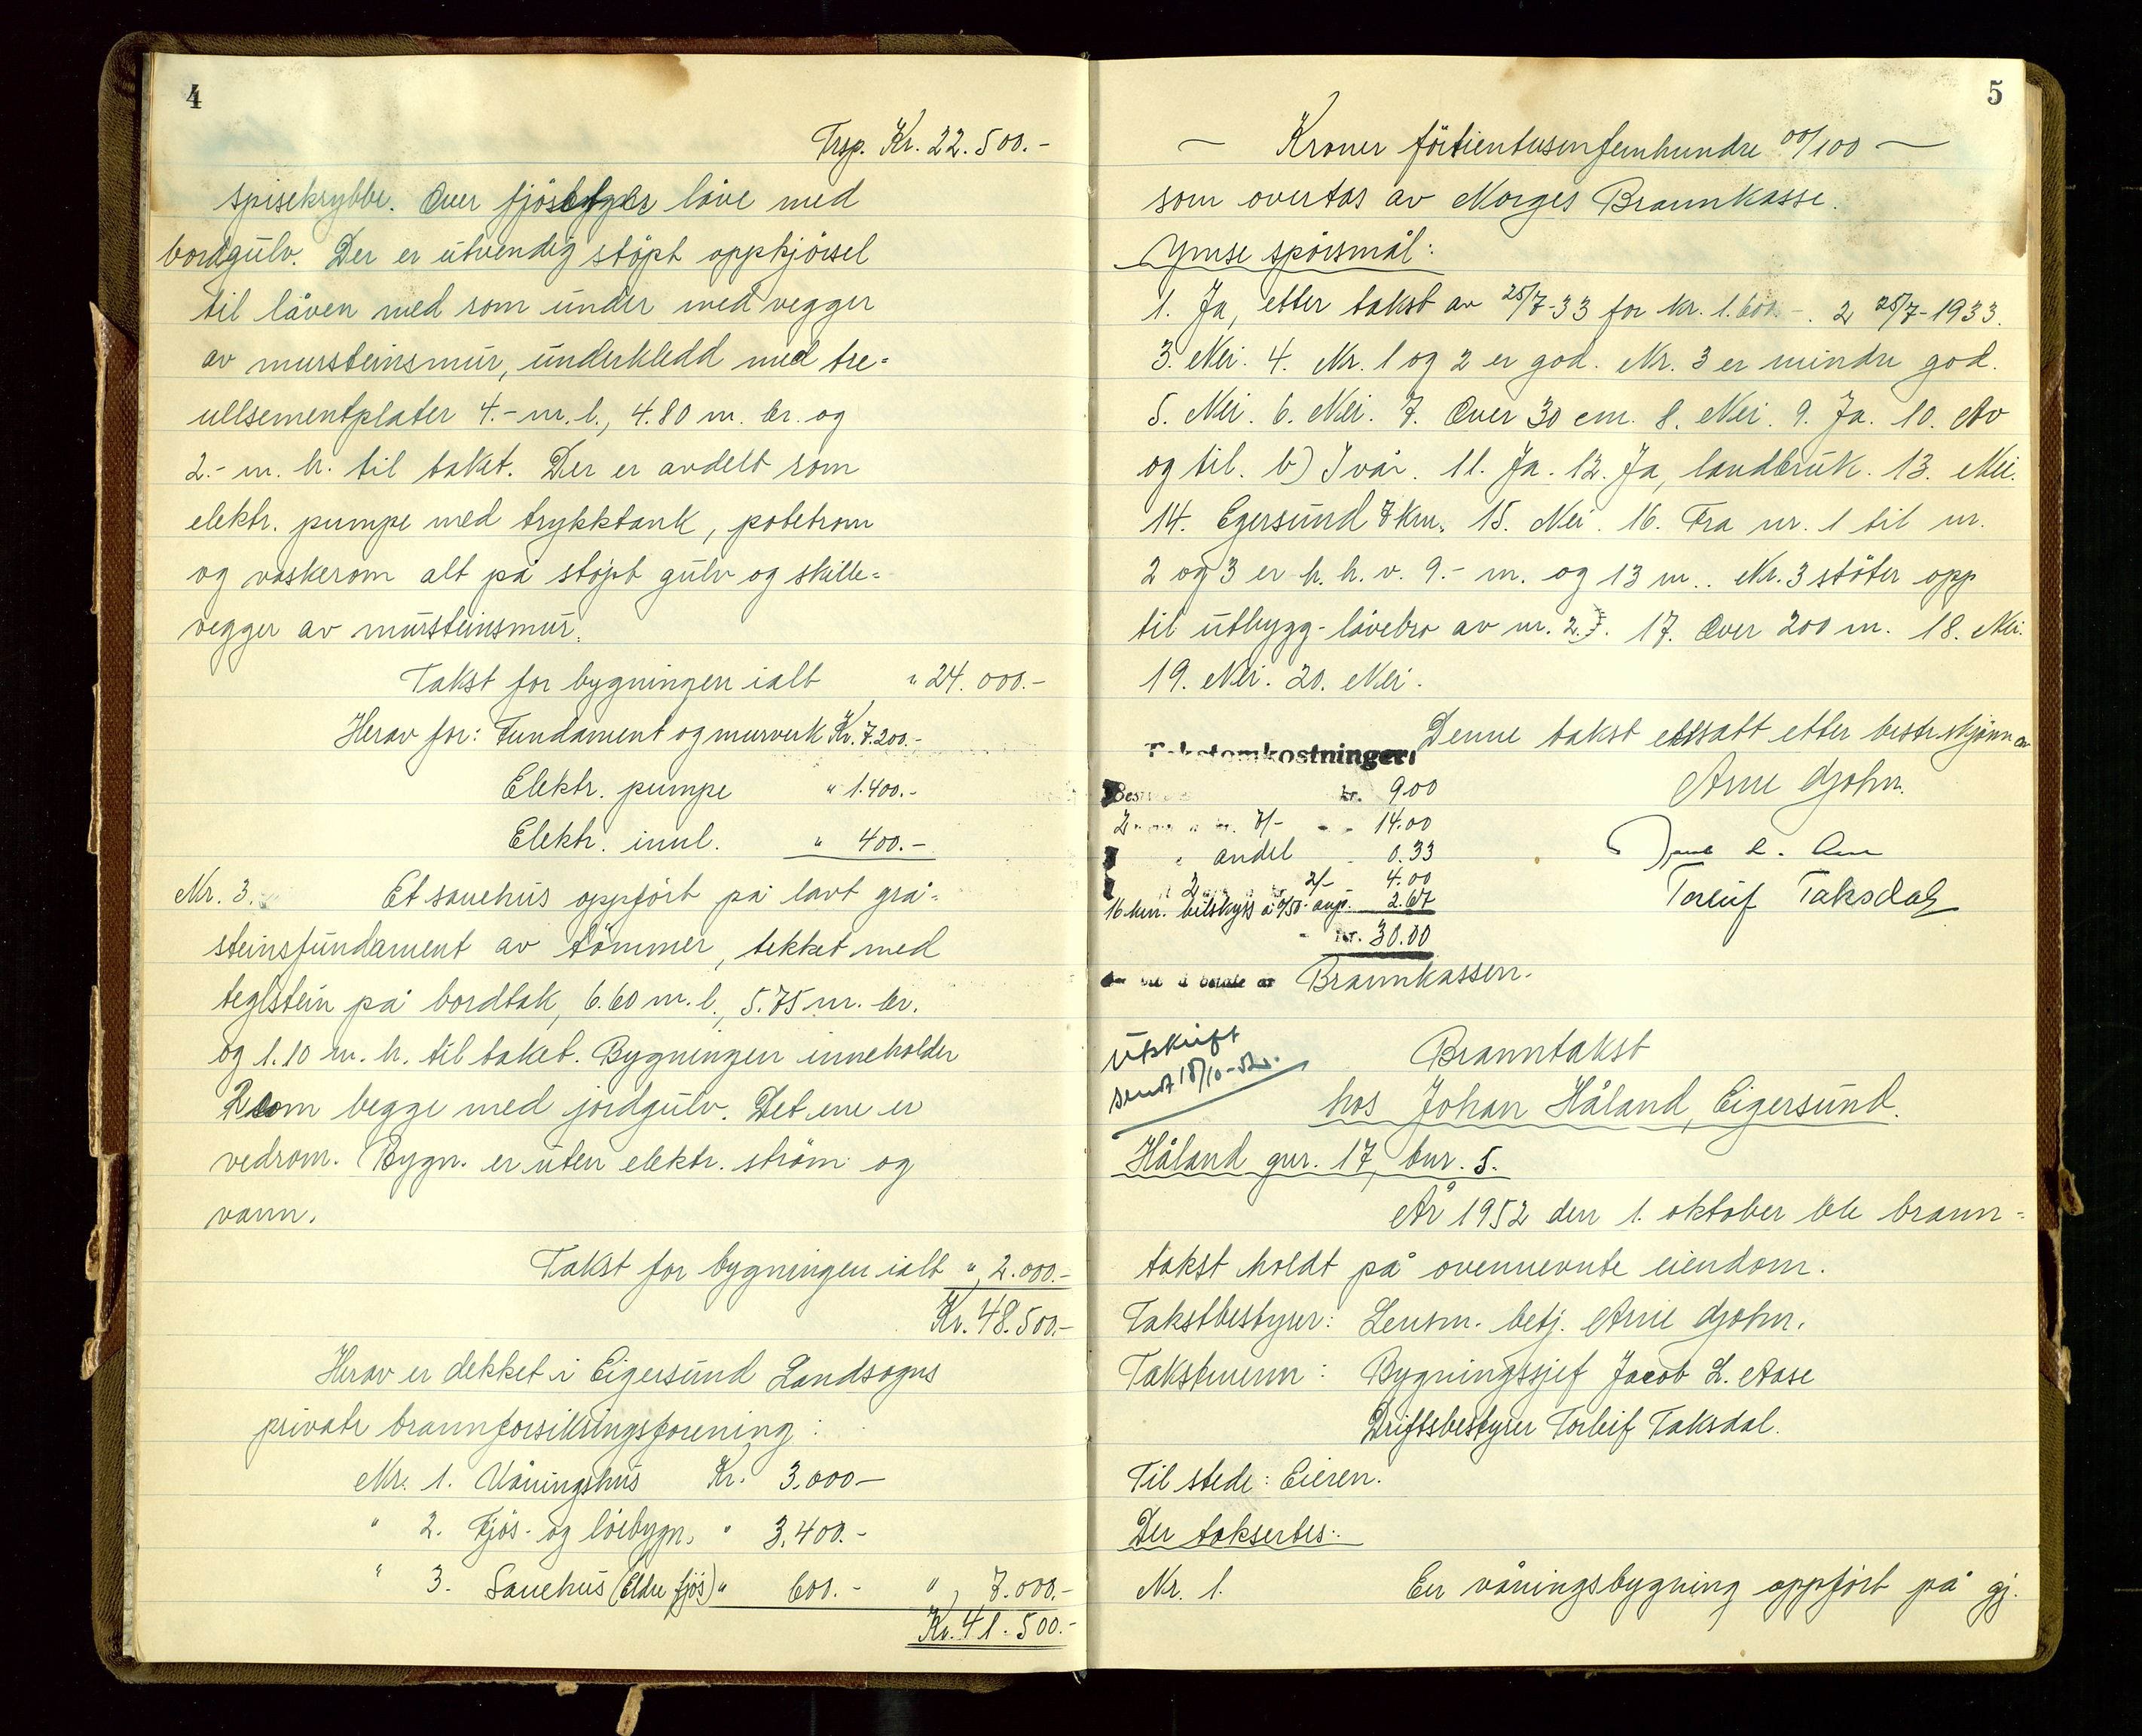 4
Trsp. Kr. 22.500.-
spisekrybbe. Over fjøset er låve med
bordgulv. Der er utvendig støpt oppkjørsel
til låven med rom under med vegger
av mursteinsmur, underkledd med tre=
ullsementplater 4.- m. l., 4.80 m. br. og
2.- m. h. til taket. Der er avdelt rom
elektr. pumpe med trykktank, potetrom
og vaskerom alt på støpt gulv og skille=
vegger av mursteinsmur.
Takst for bygningen ialt " 24.000.-
Herav for: Fundament og murverk Kr. 7.200.-
Elektr. pumpe " 1.400.-
Elektr. innl. " 400.-
Nr. 3. Et sauehus oppført på lavt grå=
steinsfundament av tømmer, tekket med
teglstein på bordtak, 6.60 m. l., 5.75 m. br.
og 1.10 m. h. til taket. Bygningen inneholder
2 rom begge med jordgulv. Det ene er
vedrom. Bygn. er uten elektr. strøm og
vann.
Takst for bygningen ialt " 2.000.-
Kr. 48.500.-
Herav er dekket i Eigersund Landsogns
private brannforsikringsforening:
Nr. 1. Våningshus Kr. 3.000.-
" 2. Fjøs- og løebygn. " 3.400.-
" 3. Sauehus (Eldre fjøs) " 600.- " 7.000.-
Kr. 41.500.-
5
— Kroner førtientusenfemhundre 00/100 —
som overtas av Norges Brannkasse.
Ymse spørsmål:
1. Ja, etter takst av 25/7-33 for kr. 1.600.-. 2. 25/7-1933.
3. Nei. 4. Nr. 1 og 2 er god. Nr. 3 er mindre god.
5. Nei. 6. Nei. 7. Over 30 cm. 8. Nei. 9. Ja. 10. Av
og til. b) I vår. 11. Ja. 12. Ja, landbruk. 13. Nei.
14. Egersund 8 km. 15. Nei. 16. Fra nr. 1 til nr.
2 og 3 er h. h. v. 9.- m. og 13 m.. Nr. 3 støter opp
til utbygg-låvebro av nr. 2. 17. Over 200 m. 18. Nei.
19. Nei. 20. Nei.
Denne takst er satt etter beste skjønn av
Takstomkostninger:
Arne Gjohn.
kr. 9.00
2 7/- 14.00
" andel 0.33
2 2/- 4.00
Torleif Taksdal
16 km. bilskyss a 0/50 2.67
kr. 30.00
Brannkassen.
Utskrift
sendt 18/10-52.
Branntakst
hos Johan Håland, Eigersund.
Håland gnr. 17, bnr. 5.
År 1952 den 1. oktober ble brann=
takst holdt på ovennevnte eiendom.
Takstbestyrer: Lensm. betj. Arne Gjohn.
Takstmenn: Bygningssjef Jacob L. Aase
Driftsbestyrer Torleif Taksdal.
Til stede: Eieren.
Der taksertes:
Nr. 1. En våningsbygning oppført på gj.